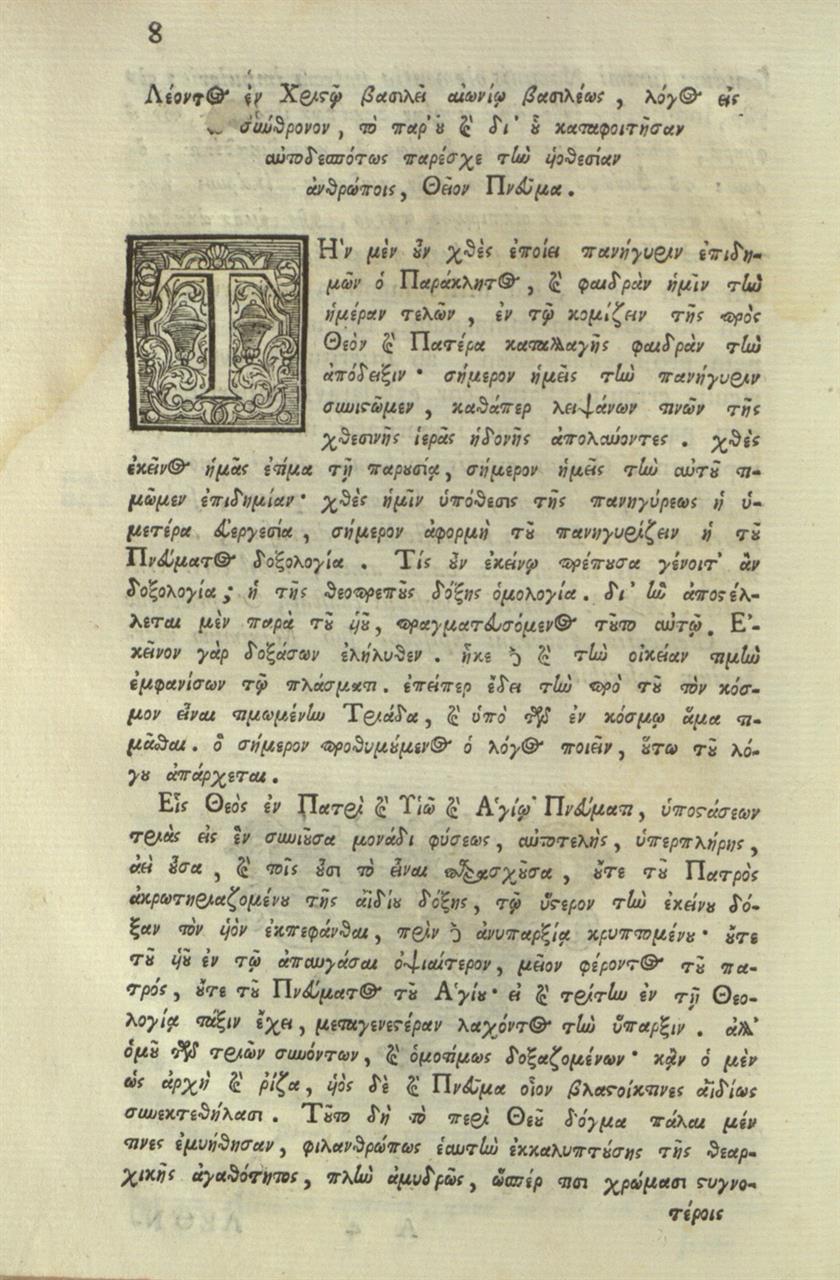 8
Λέοντος ἐν Χριστῷ βασιλεῖ αἰωνίῳ βασιλέως, λόγος εἰς
σύνθρονον, τὸ παρ' οὗ καὶ δι' οὗ καταφοιτῆσαν
αὐτοδεσπότως παρέσχε τὴν υἱοθεσίαν
ἀνθρώποις, Θεῖον Πνεῦμα.
ΤῊν μὲν οὖν χθὲς ἐποίει πανήγυριν ἐπιδη-
μῶν ὁ Παράκλητος, καὶ φαιδρὰν ἡμῖν τὴν
ἡμέραν τελῶν, ἐν τῷ κομίζειν τῆς πρὸς
Θεὸν καὶ Πατέρα καταλλαγῆς φαιδρὰν τὴν
ἀπόδειξιν· σήμερον ἡμεῖς τὴν πανήγυριν
συνιστῶμεν, καθάπερ λειψάνων τινῶν τῆς
χθεσινῆς ἱερᾶς ἡδονῆς ἀπολαύοντες. χθὲς
ἐκεῖνος ἡμᾶς ἐτίμα τῇ παρουσίᾳ, σήμερον ἡμεῖς τὴν αὐτοῦ τι-
μῶμεν ἐπιδημίαν· χθὲς ἡμῖν ὑπόθεσις τῆς πανηγύρεως ἡ ἡ-
μετέρα εὐεργεσία, σήμερον ἀφορμὴ τοῦ πανηγυρίζειν ἡ τοῦ
Πνεύματος δοξολογία. Τίς οὖν ἐκείνῳ πρέπουσα γένοιτ' ἂν
δοξολογία; ἡ τῆς θεοπρεποῦς δόξης ὁμολογία. δι' ἣν ἀποστέλ-
λεται μὲν παρὰ τοῦ υἱοῦ, πραγματευσόμενος τοῦτο αὐτῷ. Ἐ-
κεῖνον γὰρ δοξάσων ἐλήλυθεν. ἧκε δὲ καὶ τὴν οἰκείαν τιμὴν
ἐμφανίσων τῷ πλάσματι. ἐπείπερ ἔδει τὴν πρὸ τοῦ τὸν κόσ-
μον εἶναι τιμωμένην Τριάδα, καὶ ὑπὸ τῶν ἐν κόσμῳ ἅμα τι-
μᾶσθαι. ὃ σήμερον προθυμούμενος ὁ λόγος ποιεῖν, οὕτω τοῦ λό-
γου ἀπάρχεται.
Εἷς Θεὸς ἐν Πατρὶ καὶ Υἱῷ καὶ Ἁγίῳ Πνεύματι, ὑποστάσεων
τριὰς εἰς ἓν συνιοῦσα μονάδι φύσεως, αὐτοτελὴς, ὑπερπλήρης,
ἀεὶ οὖσα, καὶ τοῖς οὖσι τὸ εἶναι παρασχοῦσα, οὔτε τοῦ Πατρὸς
ἀκρωτηριαζομένου τῆς ἀϊδίου δόξης, τῷ ὕστερον τὴν ἐκείνου δό-
ξαν τὸν υἱὸν ἐκπεφάνθαι, πρὶν δὲ ἀνυπαρξίᾳ κρυπτομένου· οὔτε
τοῦ υἱοῦ ἐν τῷ ἀπαυγάσαι ὀψιαίτερον, μεῖον φέροντος τοῦ πα-
τρός, οὔτε τοῦ Πνεύματος τοῦ Ἁγίου· εἰ καὶ τρίτην ἐν τῇ Θεο-
λογίᾳ τάξιν ἔχει, μεταγενεστέραν λαχόντος τὴν ὕπαρξιν. ἀλλ'
ὁμοῦ τῶν τριῶν συνόντων, καὶ ὁμοτίμως δοξαζομένων· κἂν ὁ μὲν
ὡς ἀρχὴ καὶ ῥίζα, υἱὸς δὲ καὶ Πνεῦμα οἷον βλαστοί κτινες ἀϊδίως
συνεκτεθήλασι. Τοῦτο δὴ τὸ περὶ Θεοῦ δόγμα πάλαι μέν
τινες ἐμυήθησαν, φιλανθρώπως ἑαυτὴν ἐκκαλυπτούσης τῆς θεαρ-
χικῆς ἀγαθότητος, πλὴν ἀμυδρῶς, ὥσπέρ τισι χρώμασι στυγνο-
τέροις